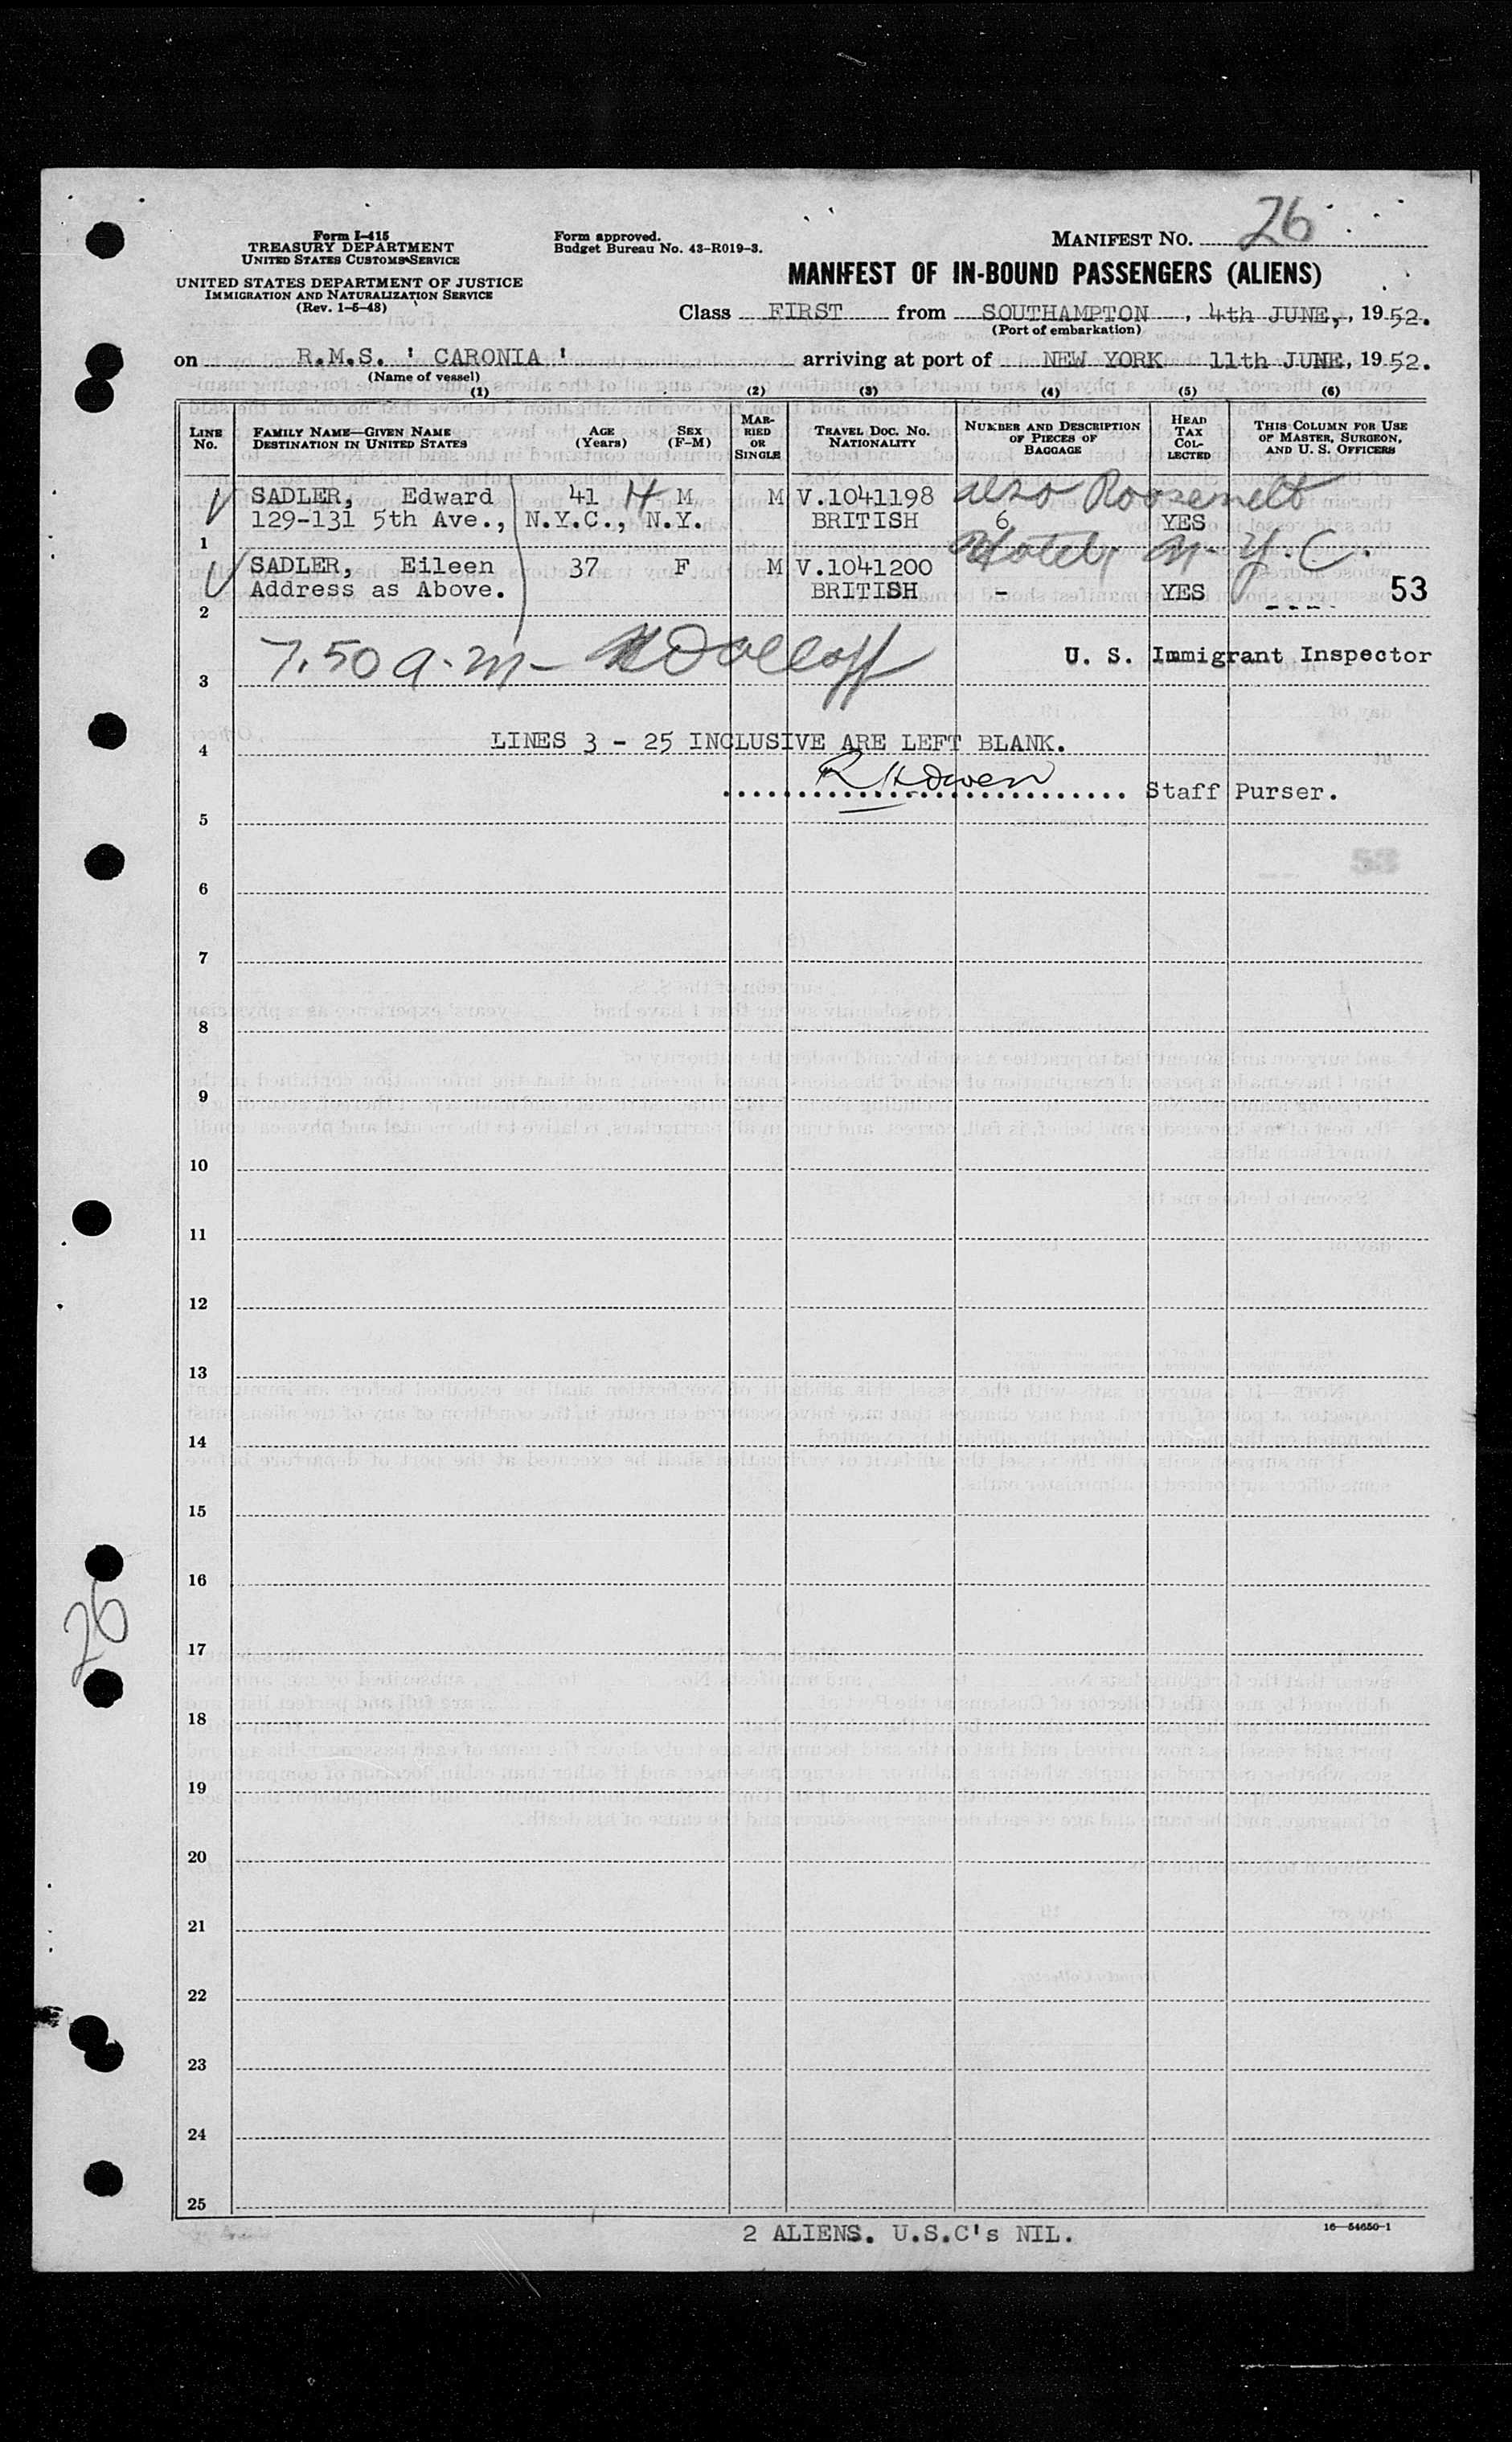 Form I-415
TREASURY DEPARTMENT
UNITED STATES CUSTOMS SERVICE
UNITED STATES DEPARTMENT OF JUSTICE
IMMIGRATION AND NATURALIZATION SERVICE
(Rev. 1-5-48)
Form approved.
Budget Bureau No. 43-R019-3.
MANIFEST NO. 26
MANIFEST OF IN-BOUND PASSENGERS (ALIENS)
Class FIRST from SOUTHAMPTON, 4th JUNE, 1952.
(Port of embarkation)
on R.M.S. ' CARONIA ' arriving at port of NEW YORK 11th JUNE, 1952.
(Name of vessel)
(1) (2) (3) (4) (5) (6)
LINE No. FAMILY NAME—GIVEN NAME DESTINATION IN UNITED STATES AGE (Years) SEX (F-M) MARRIED OR SINGLE TRAVEL DOC. NO. NATIONALITY NUMBER AND DESCRIPTION OF PIECES OF BAGGAGE HEAD TAX COLLECTED THIS COLUMN FOR USE OF MASTER, SURGEON, AND U. S. OFFICERS
SADLER, Edward 41 H M M V.1041198 also Roosevelt
129-131 5th Ave., N.Y.C., N.Y. BRITISH 6 YES
1 Hotel, N.Y.C.
SADLER, Eileen 37 F M V.1041200
Address as Above. BRITISH - YES 53
2
7.50 a.m-
U. S. Immigrant Inspector
3
4 LINES 3 - 25 INCLUSIVE ARE LEFT BLANK.
R H Owen Staff Purser.
5
53
6
7
8
9
10
11
12
13
14
15
16
26
17
18
19
20
21
22
23
24
25
2 ALIENS. U.S.C's NIL.
16—54650-1